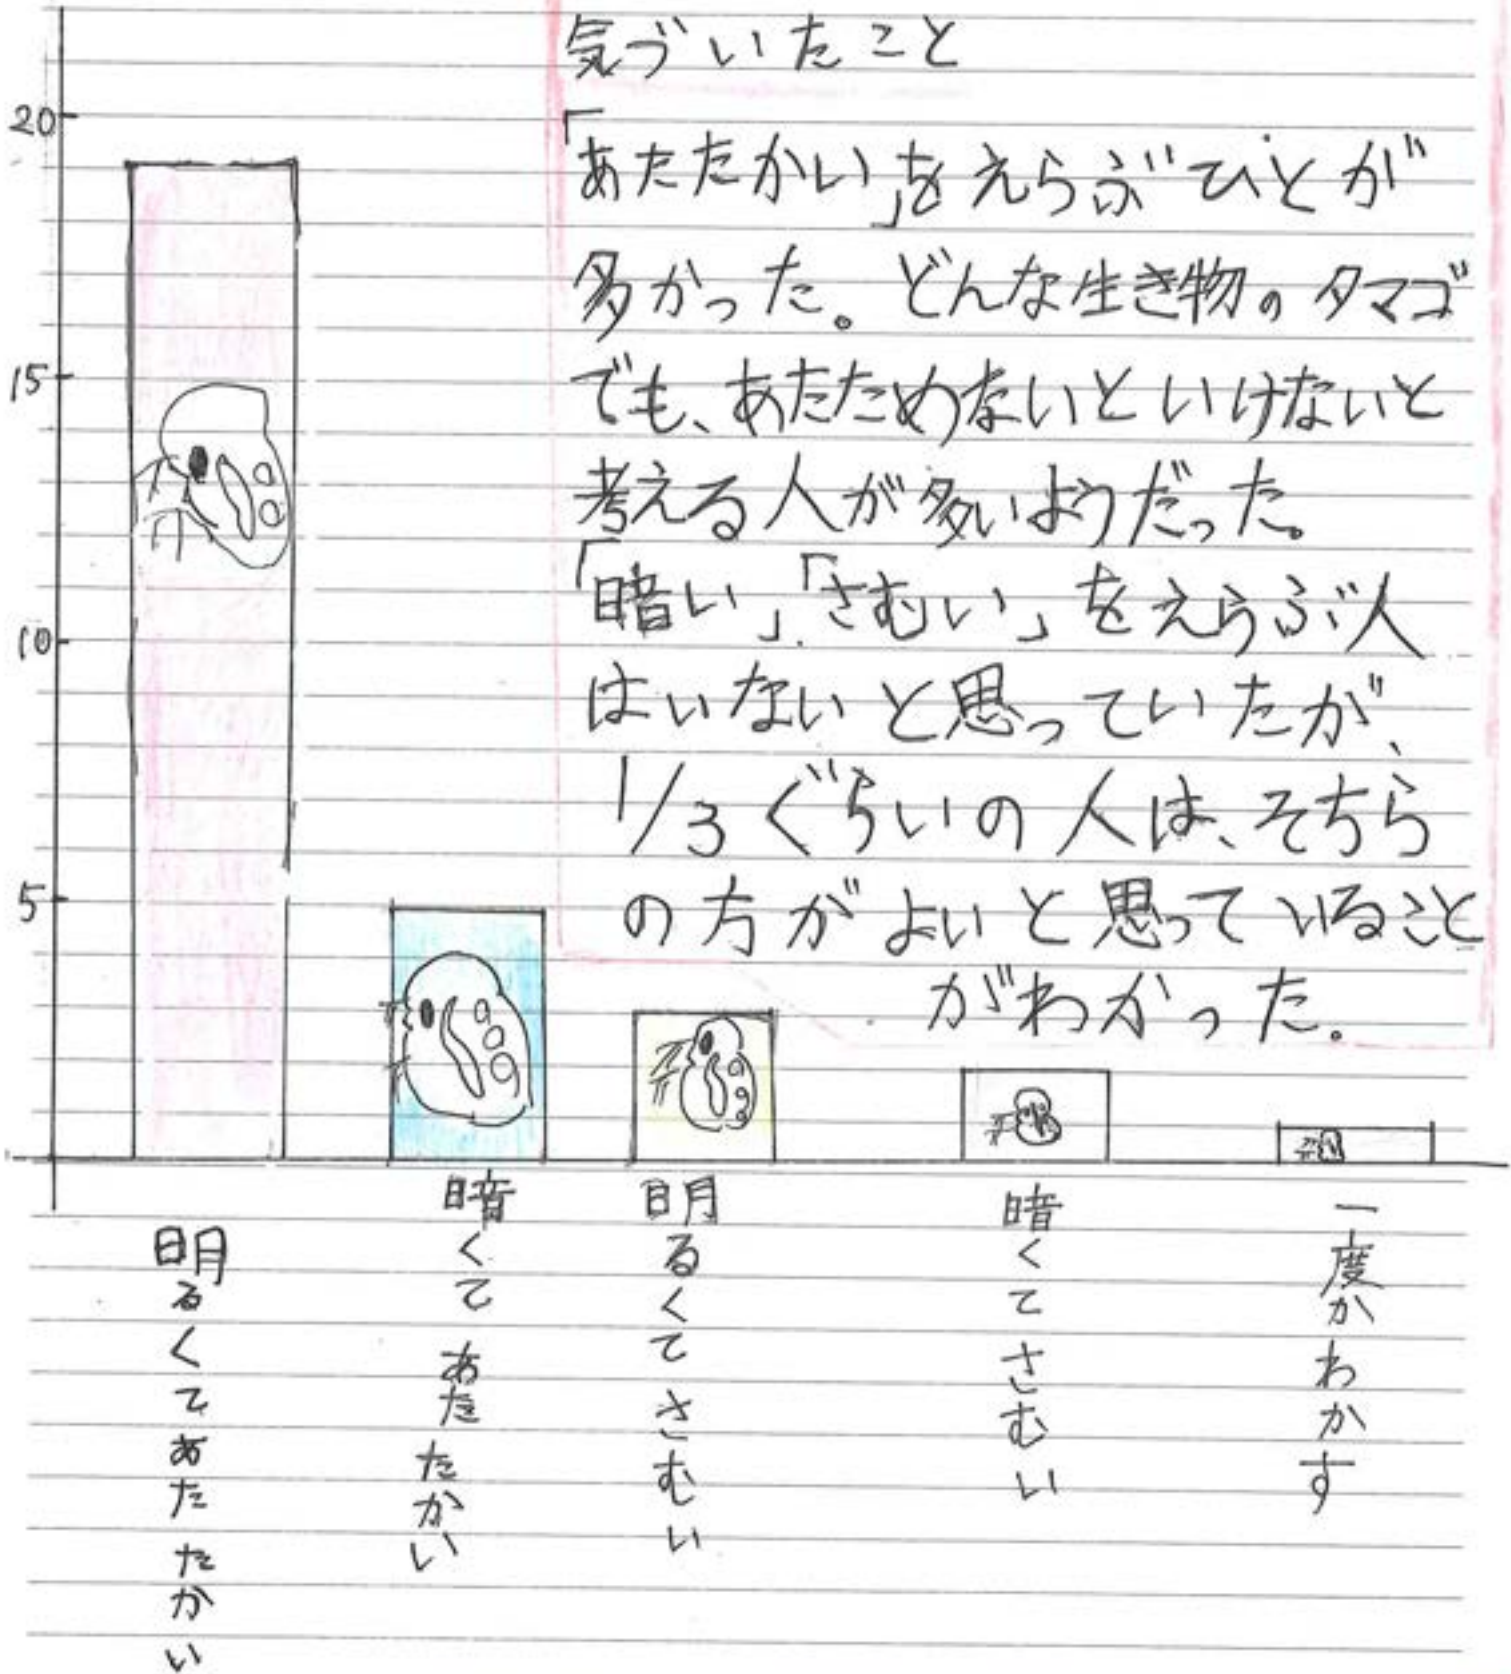 気づいたこと
「あたたかい」をえらぶひとが
多かった。どんな生き物のタマゴ
でも、あたためないといけないと
考える人が多いようだった。
「暗い」「さむい」をえらぶ人
はいないと思っていたが、
1/3ぐらいの人は、そちら
の方がよいと思っていること
がわかった。
20
15
10
5
明るくてあたたかい
暗くてあたたかい
明るくてさむい
暗くてさむい
一度かわかす